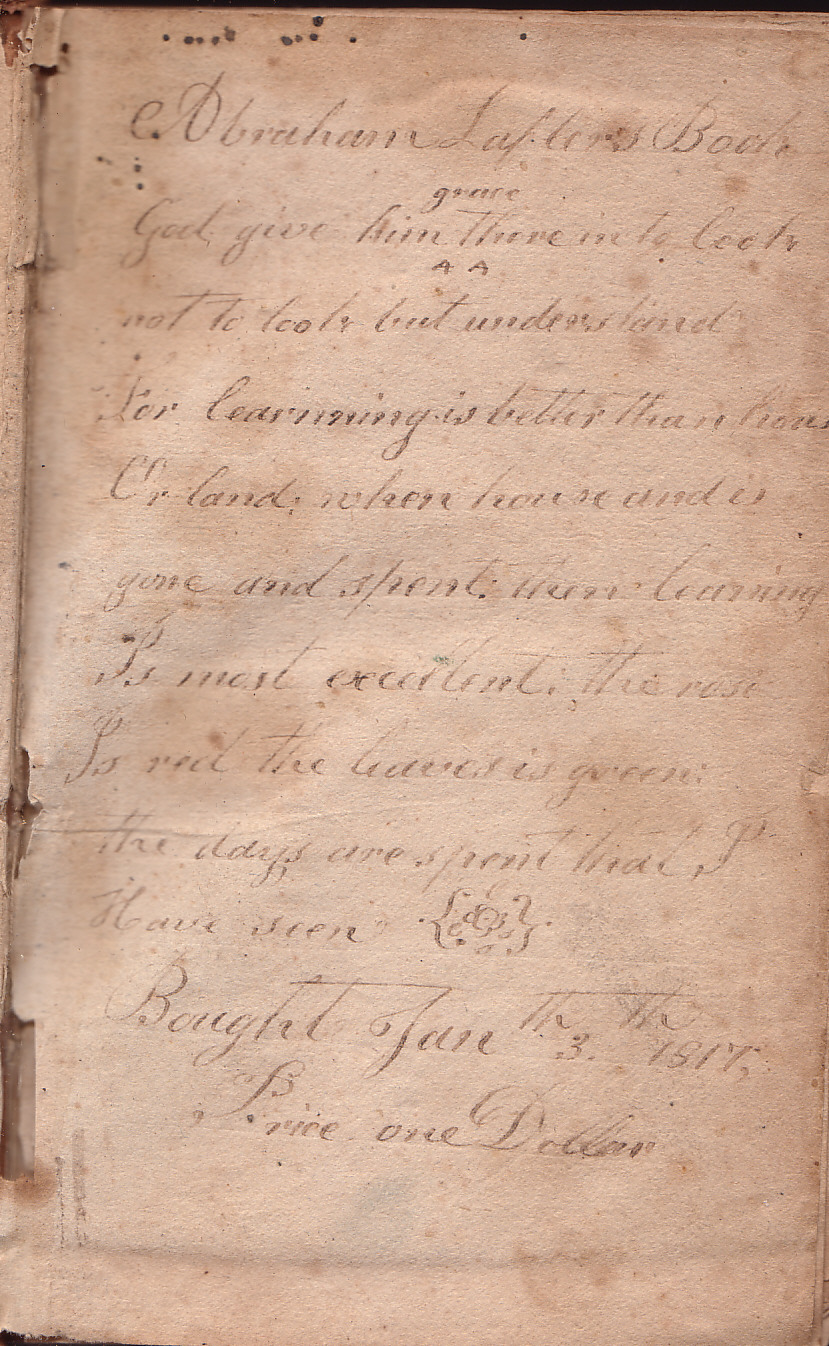 Abraham Laflers Book
grace
God give him there in to look
not to look but understand
For learnming is better than hous
Or land: when house and is
gone and spent: then learning
Is most excellent: the rose
Is red the leaves is green:
the days are spent that I
Have seen
Bought Jan th 3. th 1817.
Price one Dollar